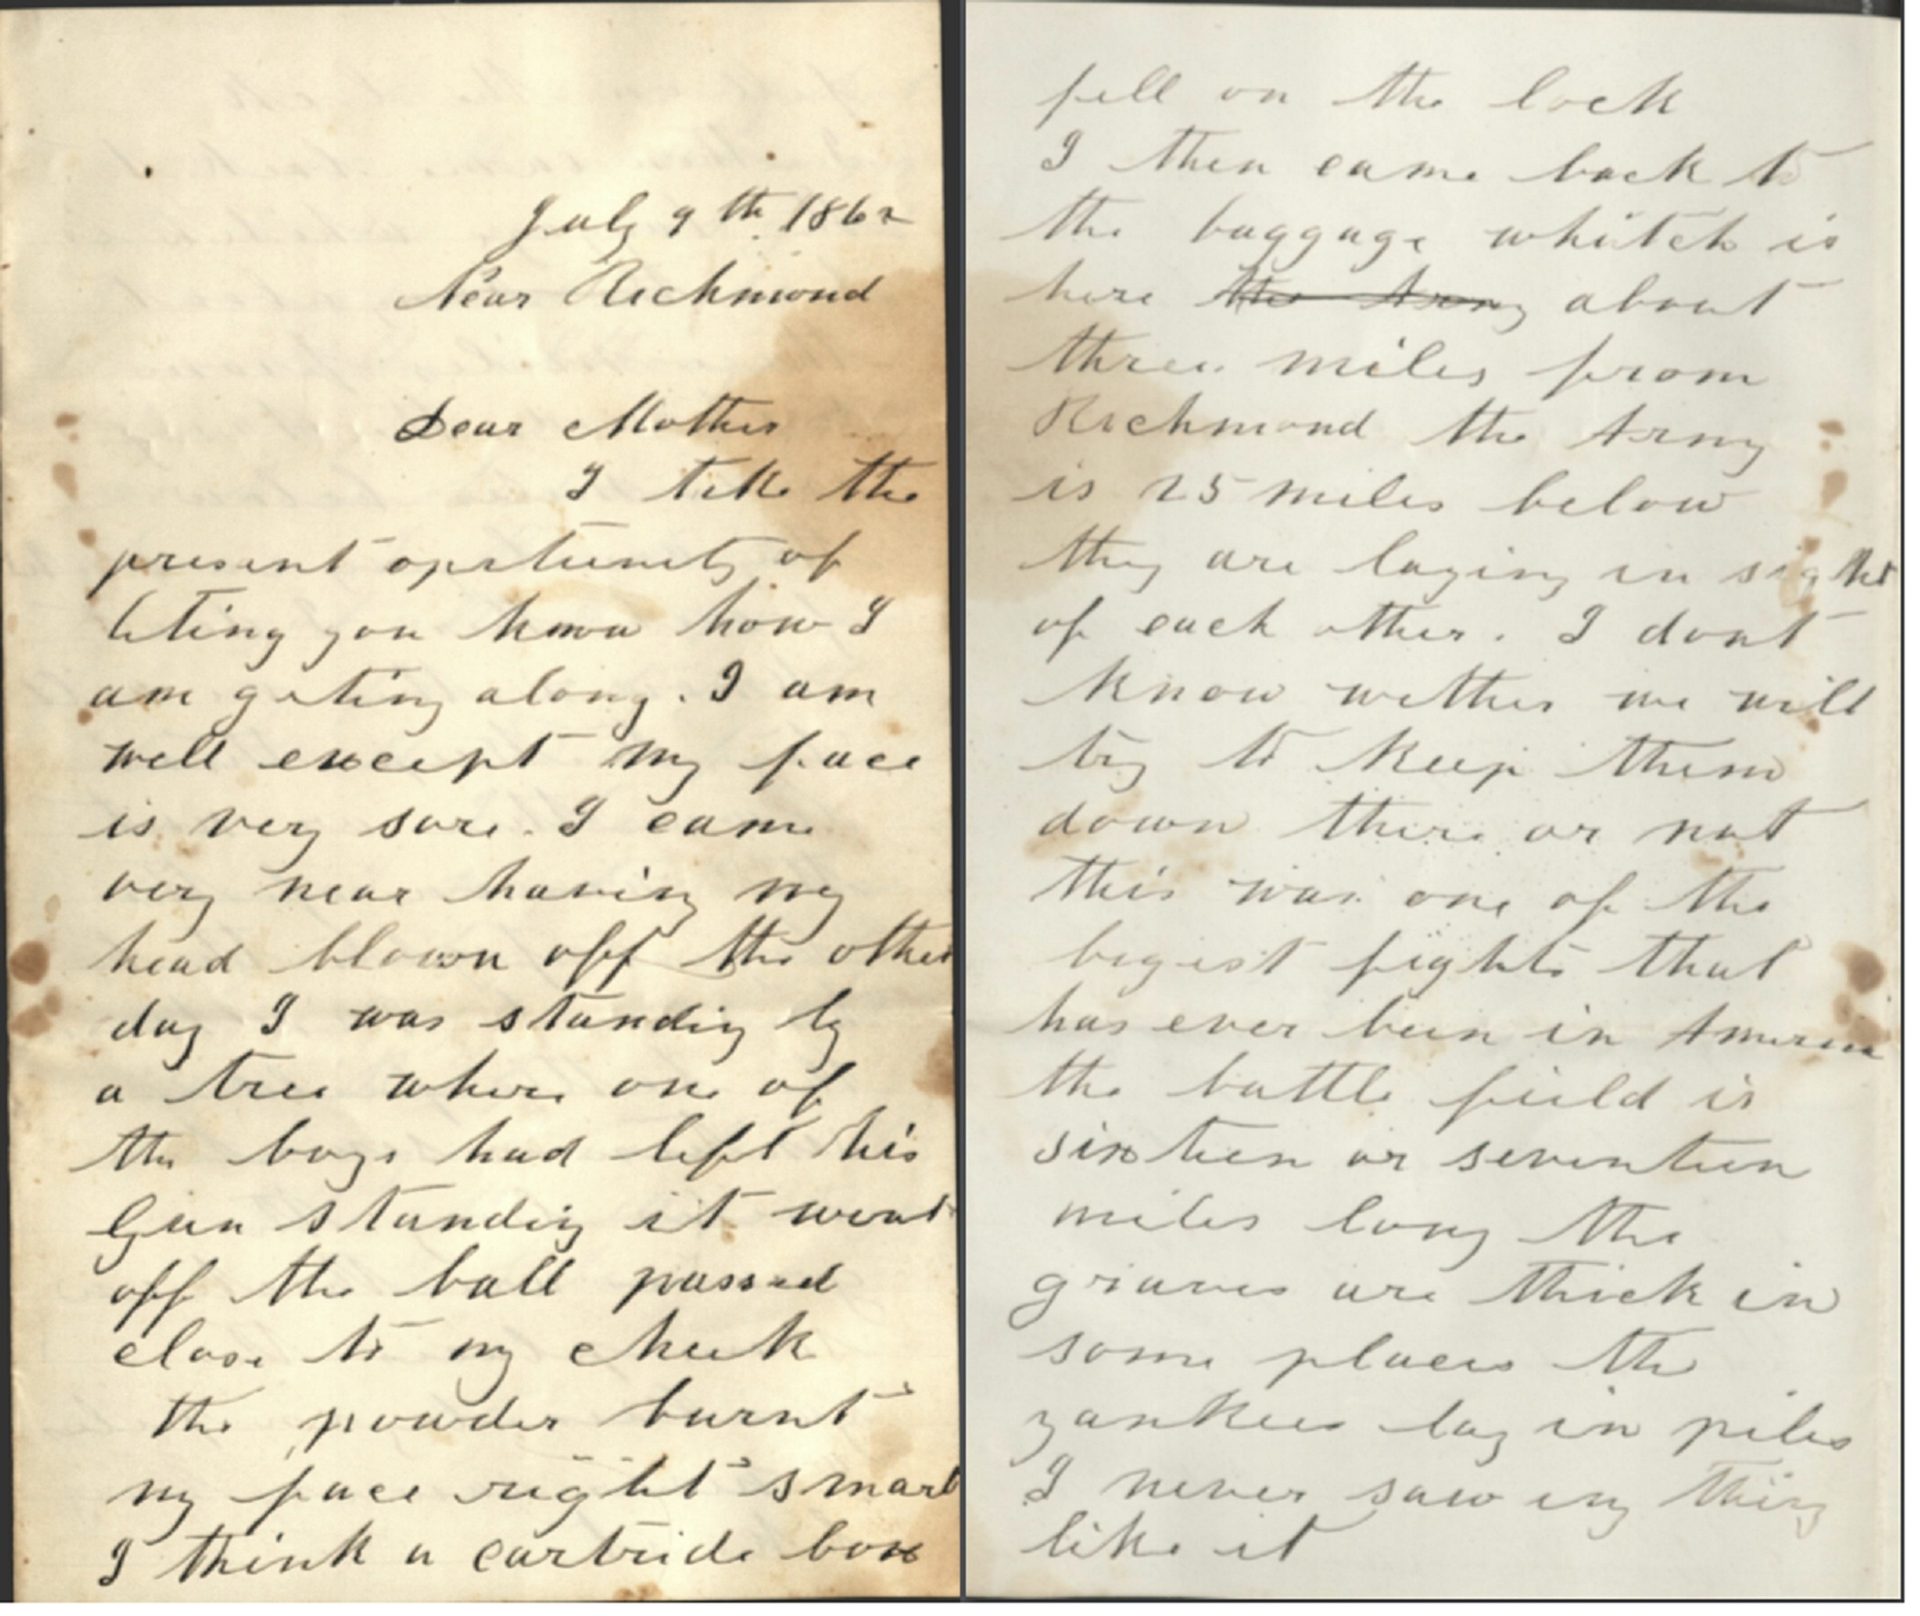 July 9th 1862
Near Richmond
Dear Mother
I take the
present oprtunity of
leting you know how I
am geting along. I am
well except my face
is very sore. I came
very near having my
head blown off the other
day I was standig by
a tree where one of
the boys had left his
Gun standig it went
off the ball passed
close to my cheek
the powder burnt
my face right smart
I think a cartride box
fell on the lock
I then came back to
the baggage whitch is
here the Army about
three miles from
Richmond the Army
is 25 miles below
they are laying in sight
of each other. I dont
know wether we will
try to keep them
down there or not
this was one of the
bigest fights that
has ever been in America
the battle field is
sixteen or seventeen
miles long the
graves are thick in
some places the
yankees lay in piles
I never saw eny thing
like it